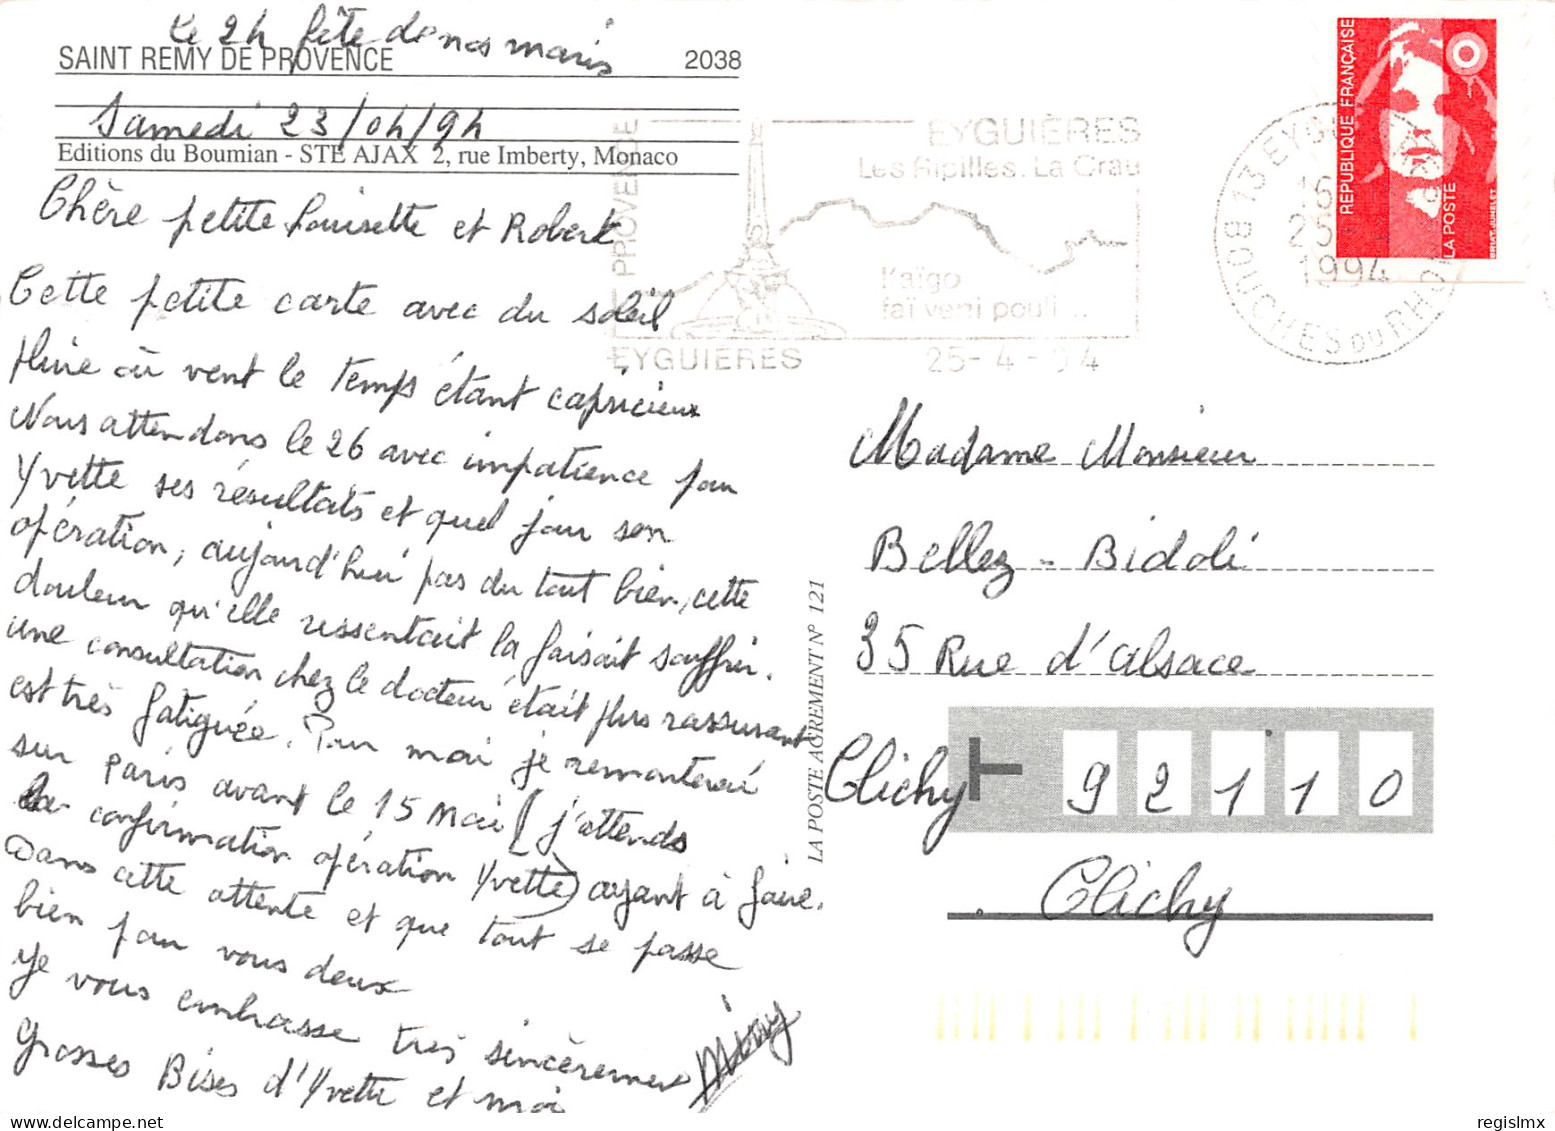 Le 24 fête de nos maris
SAINT REMY DE PROVENCE 2038
Samedi 23/04/94
Editions du Boumian - STE AJAX 2, rue Imberty, Monaco
Chère petite Louisette et Robert
Cette petite carte avec du soleil
pluie où vent le temps étant capricieux
Nous attendons le 26 avec impatience pour
Yvette ses résultats et quel jour son
opération, aujourd'hui pas du tout bien, cette
douleur qu'elle ressentait la faisait souffrir.
une consultation chez le docteur était plus rassurant
est très fatiguée. Pour moi je remonterai
sur Paris avant le 15 Mai (j'attends
la confirmation opération Yvette) ayant à faire.
Dans cette attente et que tout se passe
bien pour vous deux
Je vous embrasse très sincèrement
Grosses Bises d'Yvette et moi
PROVENCE
EYGUIÈRES
Les Alpilles. La Crau
l'aïgo
faï veni pouli...
EYGUIERES 25-4-94
13 EYGUIERES
16
25
1994
BOUCHES DU RHONE
REPUBLIQUE FRANÇAISE
LA POSTE
BRIAT-JUMELET
Madame Monsieur
Bellez - Bidoli
35 Rue d'Alsace
Clichy 92110
Clichy
LA POSTE AGREMENT N° 121
regislmx